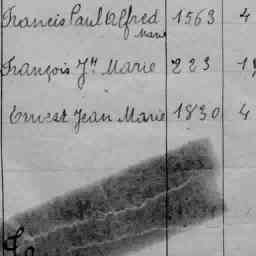 Francis Paul Alfred 1563 4
Marie
François Jh Marie 223
Ernest Jean Marie 1830 4